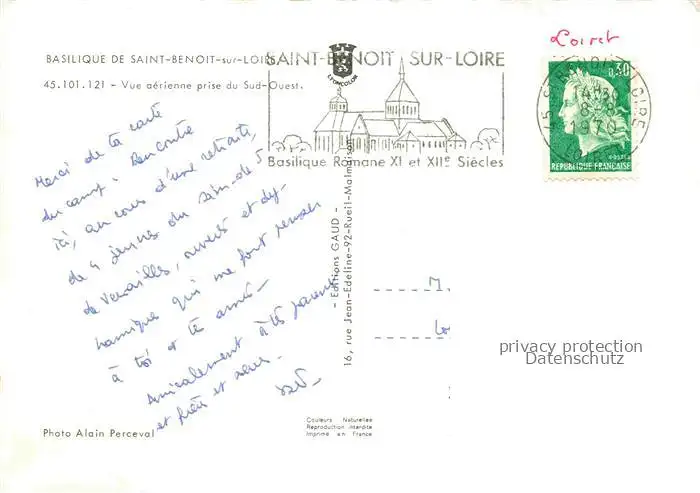 Loiret
BASILIQUE DE SAINT-BENOIT-sur-LOIRE
45.101.121 - Vue aérienne prise du Sud-Ouest.
LYONCOLOR
SAINT-BENOIT SUR-LOIRE
Basilique Romane XI et XIIe Siècles
45 ST BENOIT S LOIRE
14H30
8-9
1970
LOIRET
0,30
REPUBLIQUE FRANÇAISE
Merci de ta carte
du camp. Rencontré
ici, au cours d'une retraite,
de 4 jeunes du
de Versailles, ouverts et dy-
namiques qui me font penser
à toi et tes amis -
Amicalement à tes parents
et frère et sœur.
- Editions GAUD -
16, rue Jean-Edeline-92-Rueil-Malmaison
M
privacy protection
Datenschutz
Photo Alain Perceval
Couleurs Naturelles
Reproduction interdite
Imprimé en France